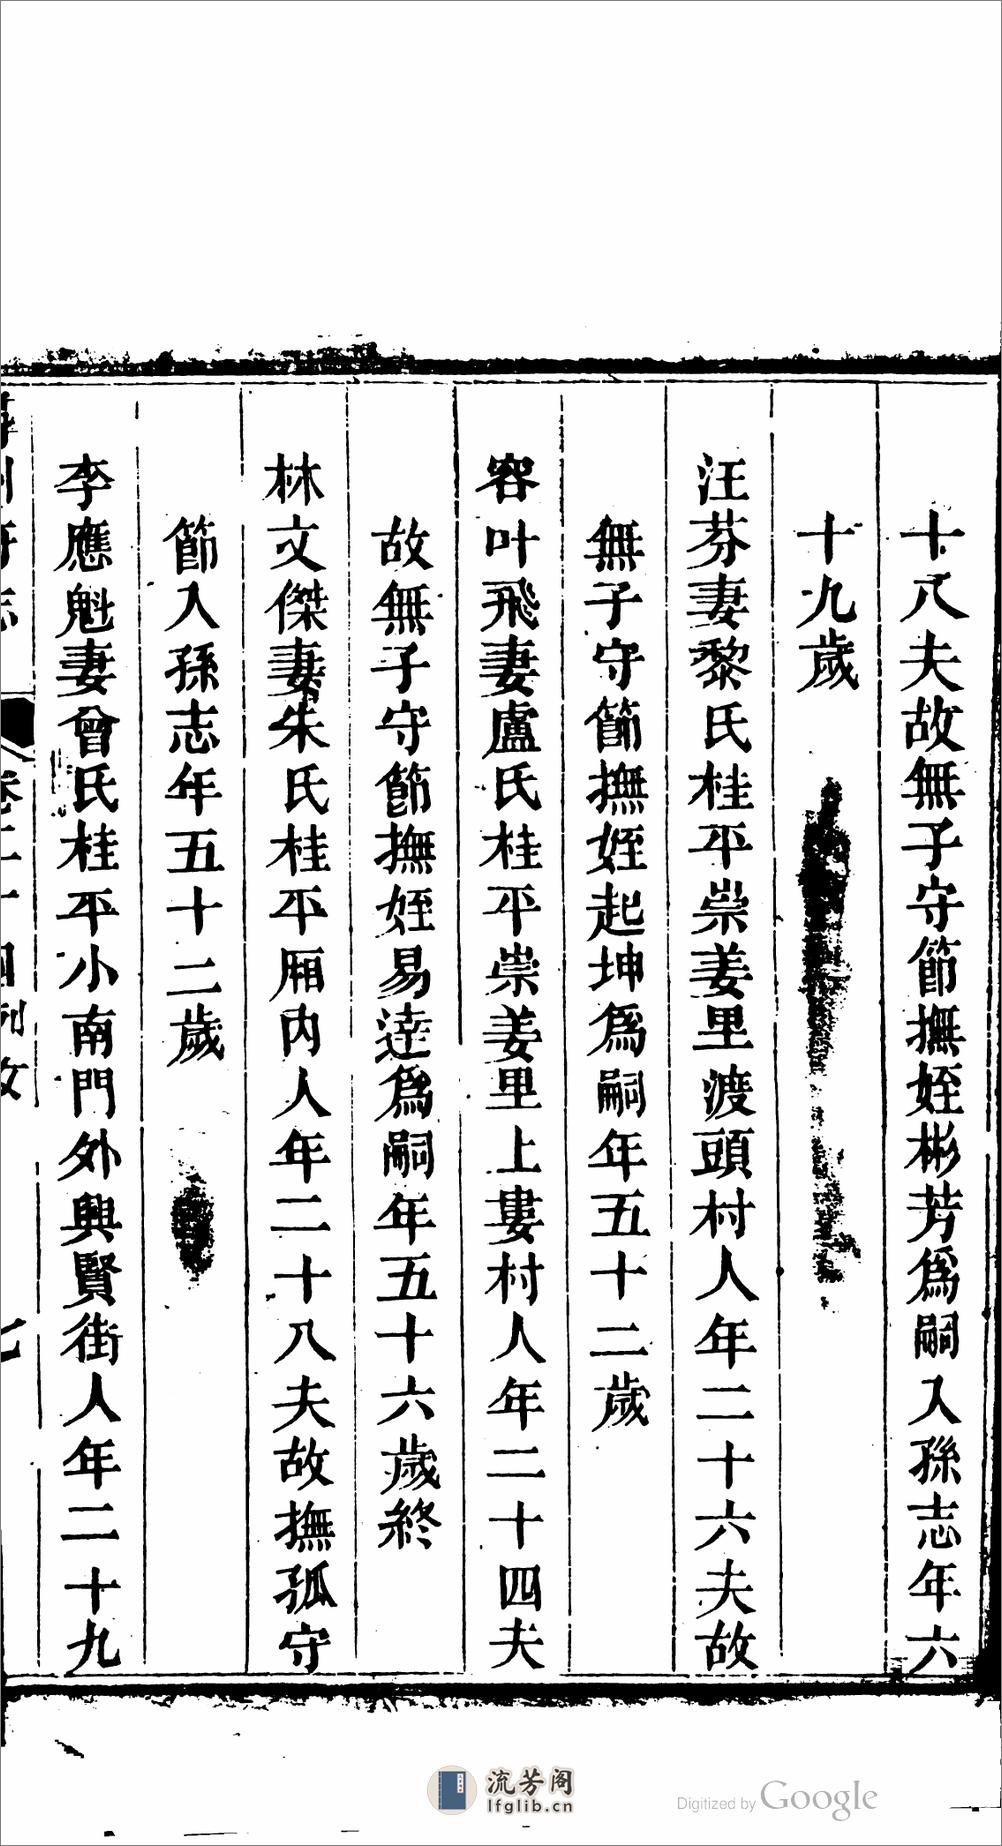 十八夫故無子守節撫姪彬芳爲嗣入孫志年六
十九歲
汪芬妻黎氏桂平崇姜里渡頭村人年二十六夫故
無子守節撫姪起坤爲嗣年五十二歲
容叶飛妻盧氏桂平崇姜里上婁村人年二十四夫
故無子守節撫姪易達爲嗣年五十六歲終
林文傑妻朱氏桂平厢內人年二十八夫故撫孤守
節入孫志年五十二歲
李應魁妻曾氏桂平小南門外興賢街人年二十九
流芳阁
lfglib.cn
Digitized by Google